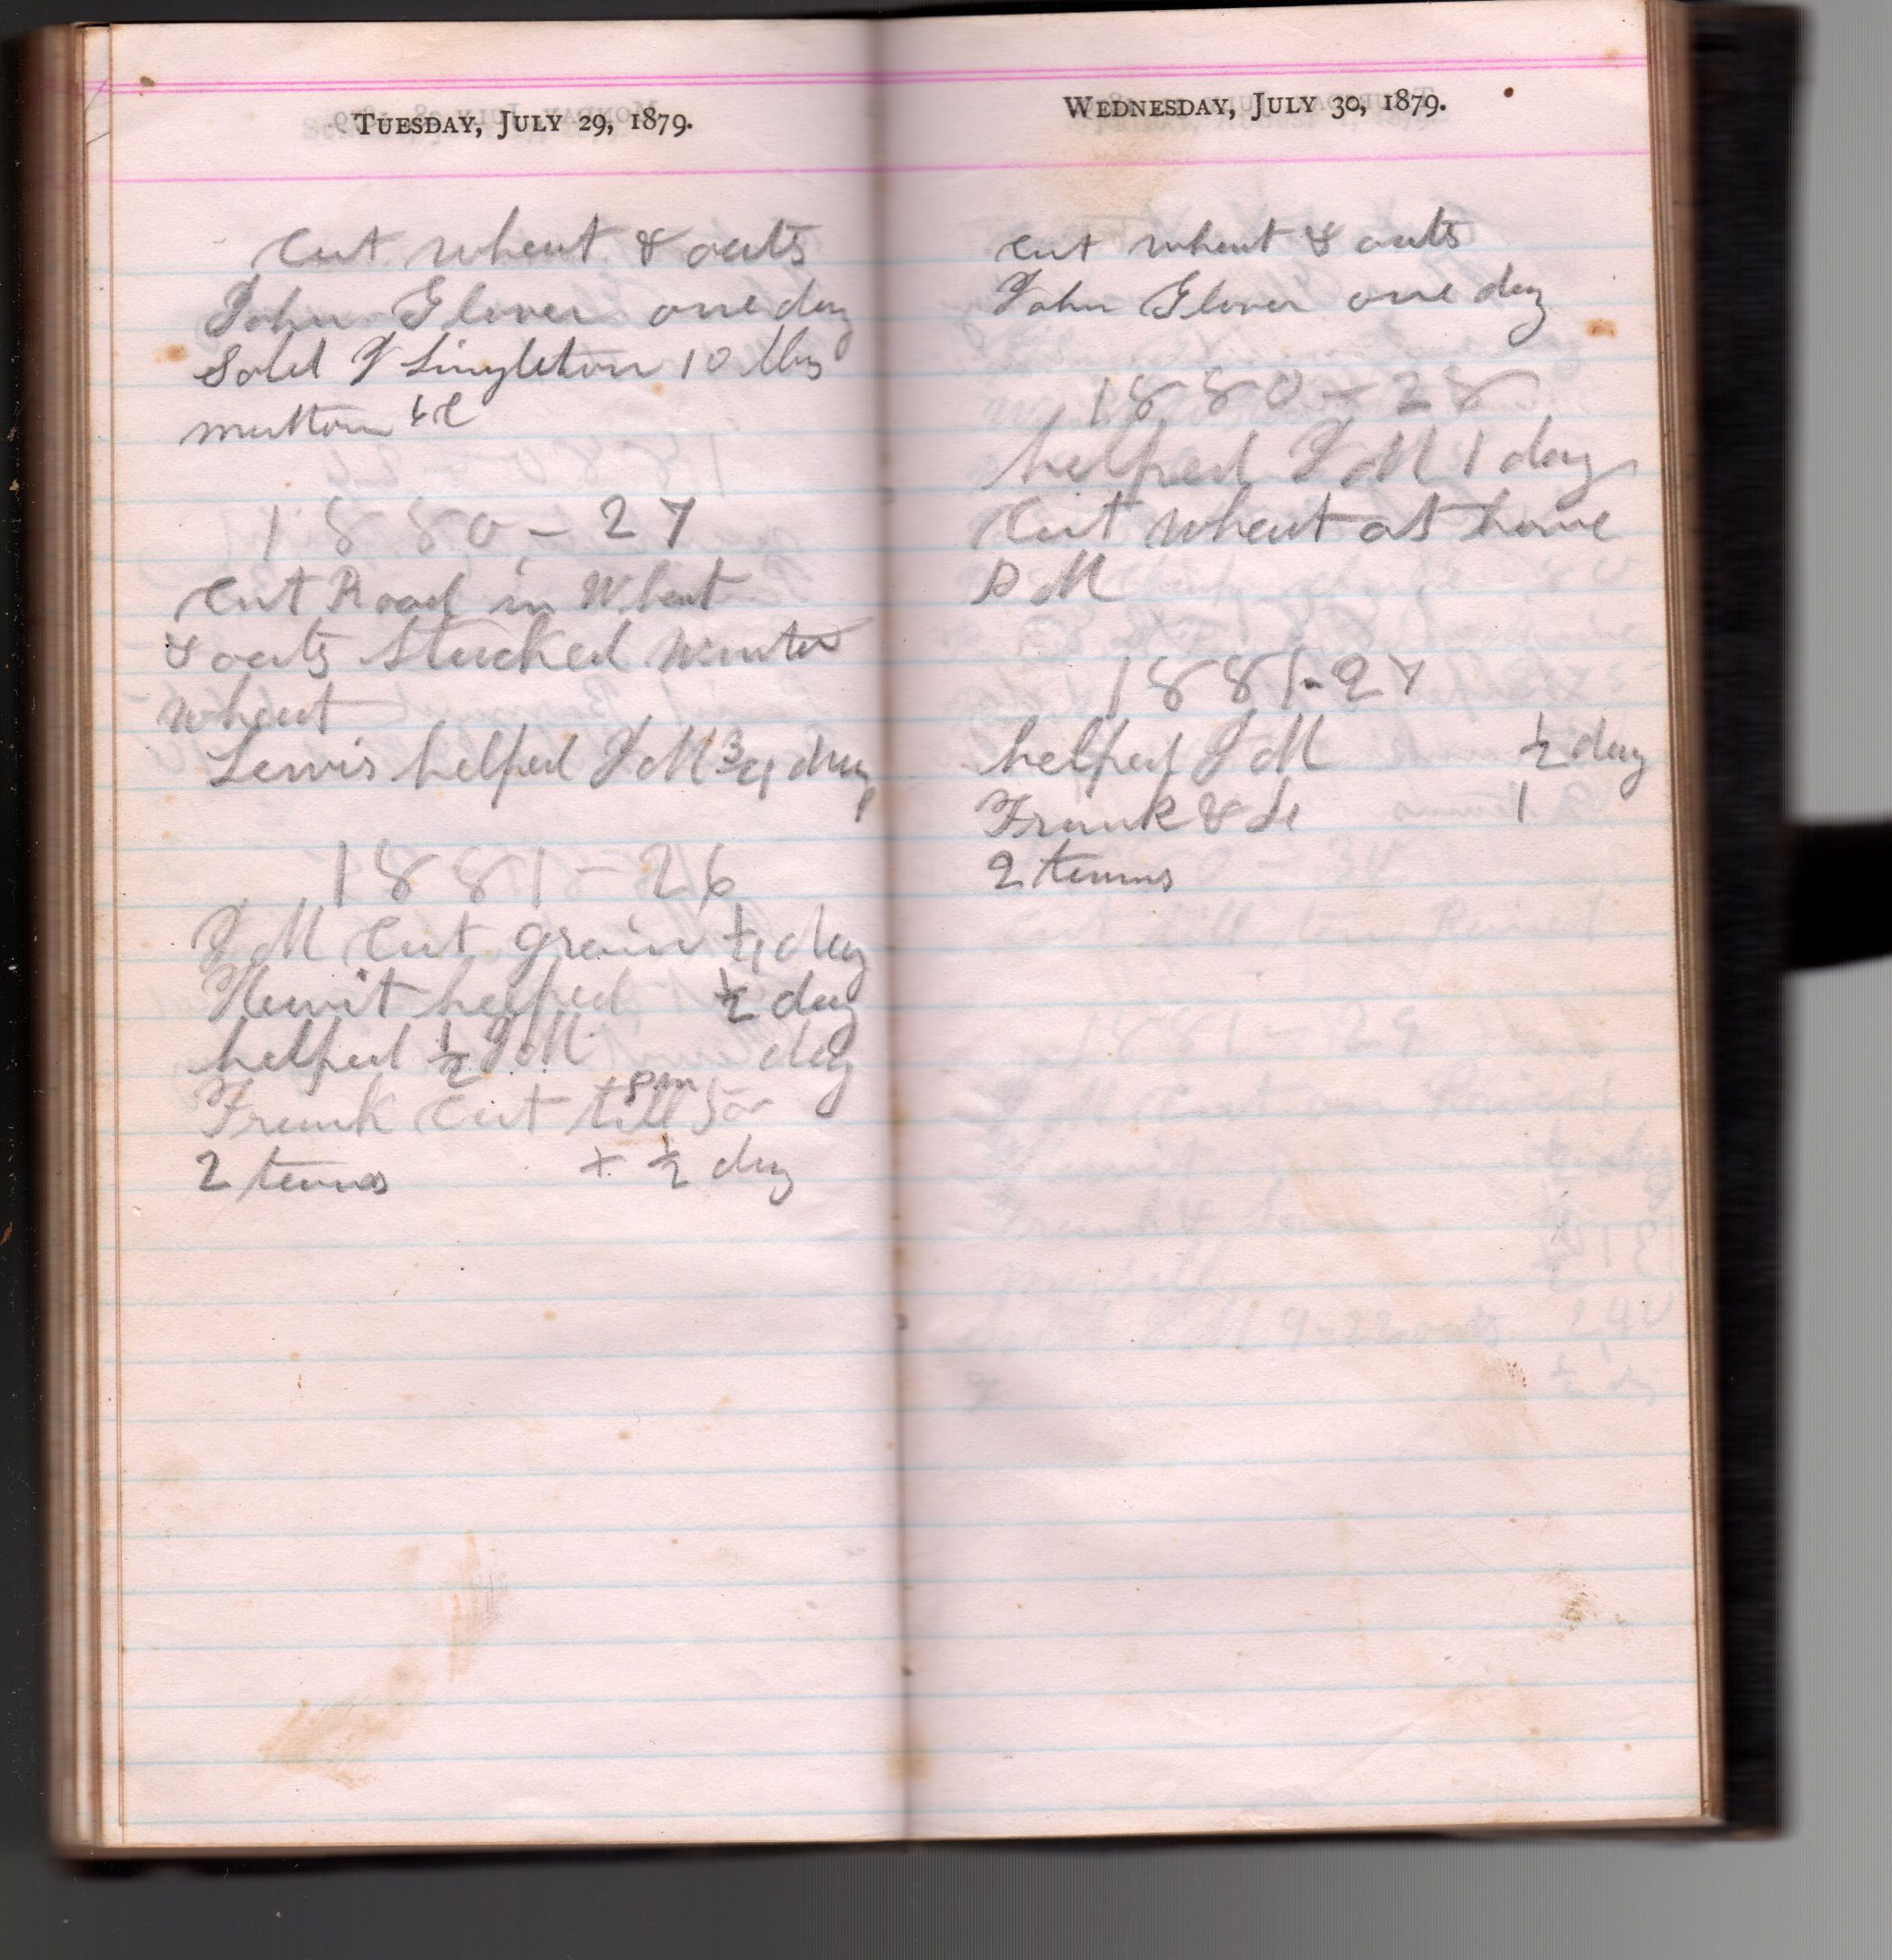 TUESDAY, JULY 29, 1879.
Cut wheat & oats
John Glover one day
Sold J Singleton 10 lbs
mutton 6c
1880 - 27
Cut Road in Wheat
& oats stacked winter
wheat
Lewis helped J M 3/4 day
1881 - 26
J M Cut grain 1/4 day
Hewit helped 1/2 day
helped 1/2 J M day
Frank Cut till 5 pm
2 teams + 1/2 day
WEDNESDAY, JULY 30, 1879.
Cut wheat & oats
John Glover one day
1880 - 28
helped J M 1 day
Cut wheat at home
P M
1881 - 27
helped J M 1/2 day
Frank & Le 1
2 teams